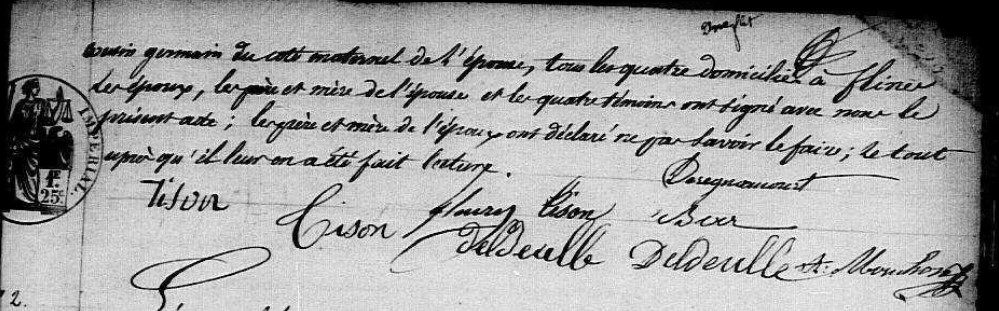 cousin germain du coté maternel de l'épouse, tous les quatre domiciliés à flines
Les époux, les père et mère de l'épouse et les quatre témoins ont signé avec nous le
présent acte ; les père et mère de l'époux ont déclaré ne pas savoir le faire ; le tout
après qu'il leur en a été fait lecture.
IMPERIAL.
1F.
25c.
Tison
Tison fleury tison
Deldeulle Deldeulle
2.